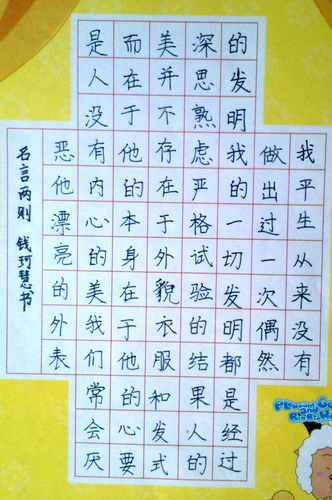 我平生从来没有
做出过一次偶然
的发明我的一切发明都是经过
深思熟虑严格试验的结果人的
美并不存在于外貌衣服和发式
而在于他的本身在于他的心要
是人没有内心的美我们常会厌
恶他漂亮的外表
名言两则 钱珂慧书
and